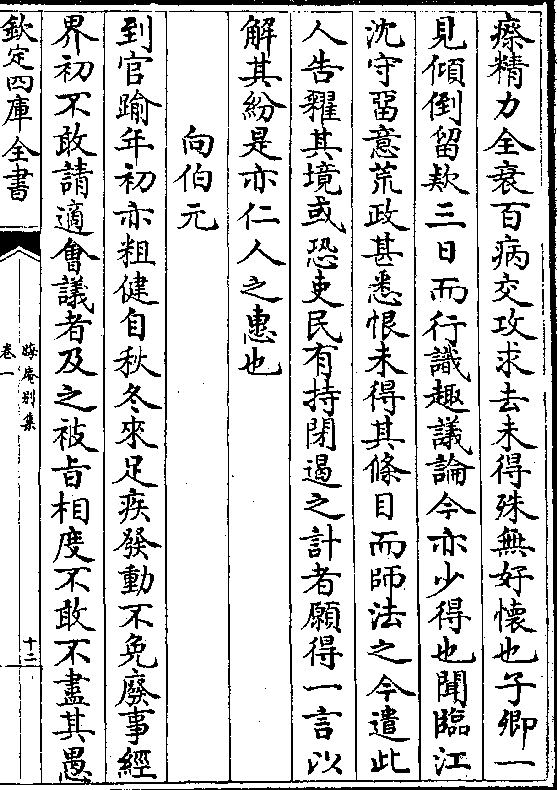 瘵精力全衰百病交攻求去未得殊無好懷也子卿一
見傾倒留欵三日而行識趣議論今亦少得也聞臨江
沈守畱意荒政甚悉恨未得其條目而師法之今遣此
人告糴其境或恐吏民有持閉遏之計者願得一言以
解其紛是亦仁人之惠也
向伯元
到官踰年初亦粗健自秋冬來足疾發動不免廢事經
界初不敢請適會議者及之被旨相度不敢不盡其愚
欽定四庫全書
晦庵别集
卷一
十二